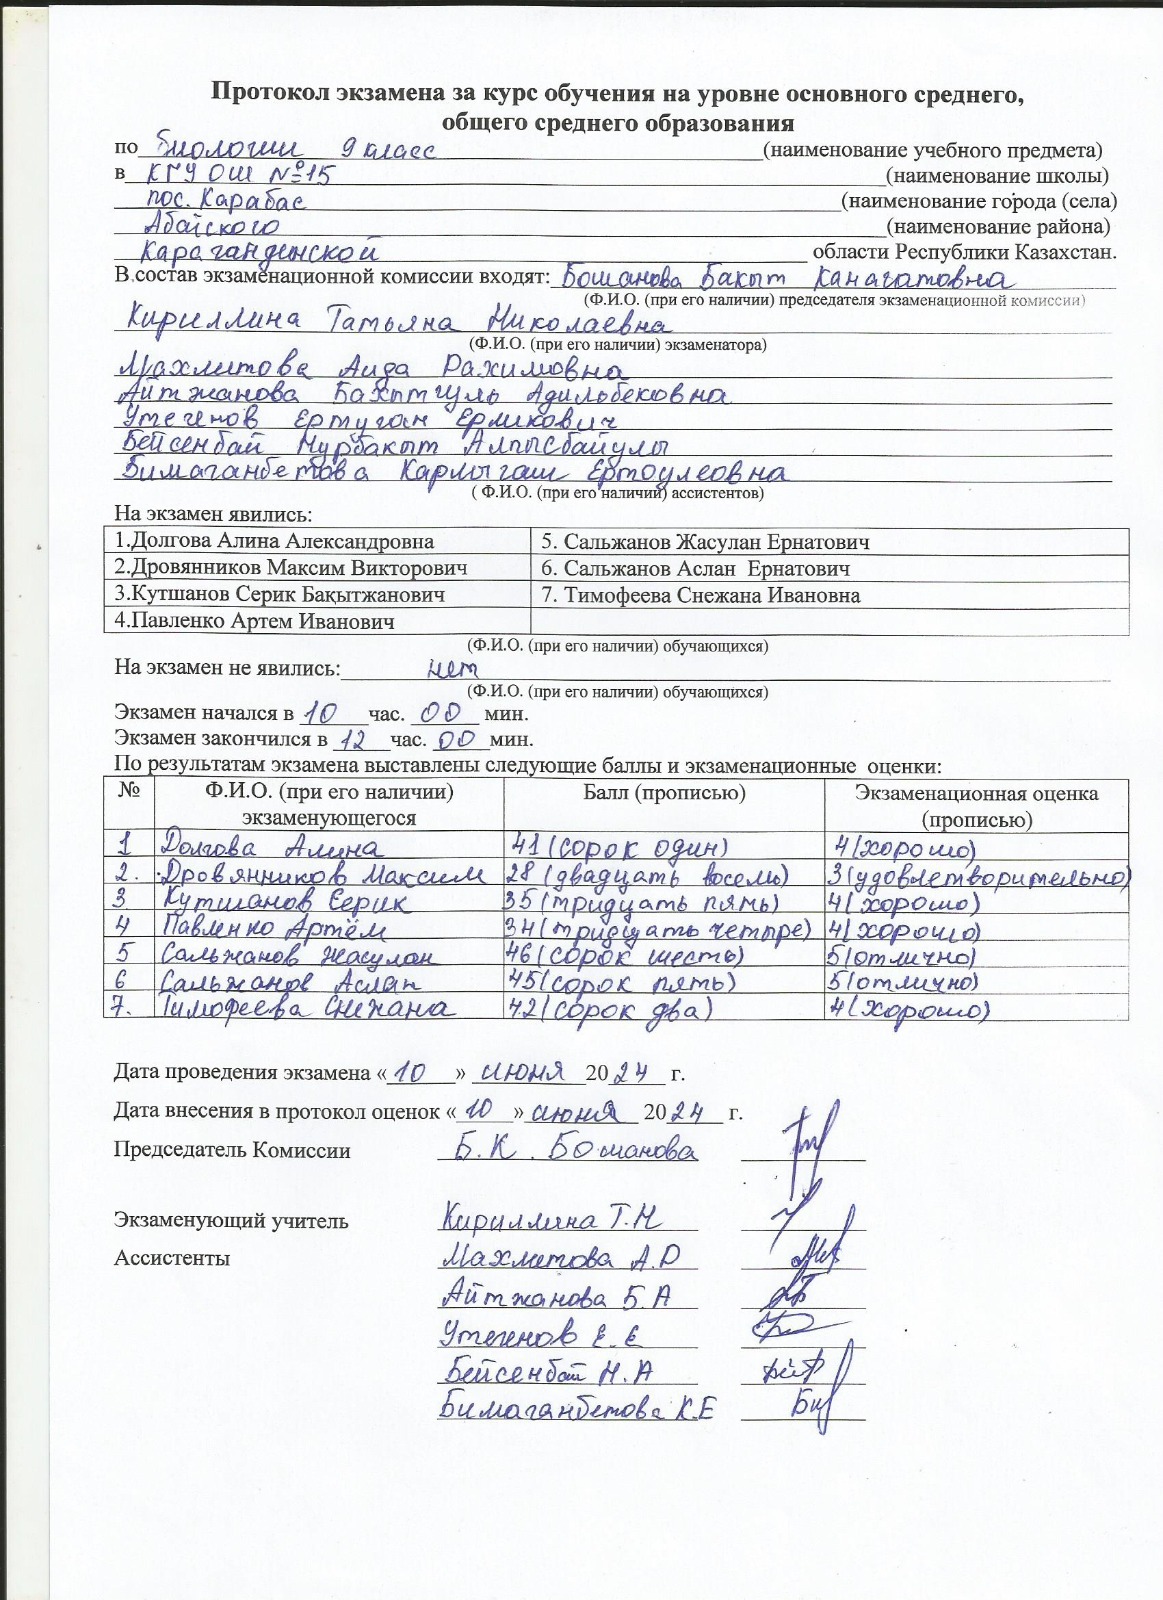 Протокол экзамена за курс обучения на уровне основного среднего,
общего среднего образования
по Биологии 9 класс (наименование учебного предмета)
в КГУ ОШ №15 (наименование школы)
пос. Карабас (наименование города (села)
Абайского (наименование района)
Карагандинской области Республики Казахстан.
В состав экзаменационной комиссии входят: Бошанова Бакыт Канагатовна
(Ф.И.О. (при его наличии) председателя экзаменационной комиссии)
Кириллина Татьяна Николаевна
(Ф.И.О. (при его наличии) экзаменатора)
Махметова Аида Рахимовна
Айтжанова Бахытгуль Адильбековна
Утегенов Ертуган Ермикович
Бейсенбай Нурбакыт Алпысбайулы
Бимаганбетова Карлыгаш Ертоулеовна
( Ф.И.О. (при его наличии) ассистентов)
На экзамен явились:
1.Долгова Алина Александровна 5. Сальжанов Жасулан Ернатович
2.Дровянников Максим Викторович 6. Сальжанов Аслан Ернатович
3.Кутшанов Серик Бақытжанович 7. Тимофеева Снежана Ивановна
4.Павленко Артем Иванович
(Ф.И.О. (при его наличии) обучающихся)
На экзамен не явились: нет
(Ф.И.О. (при его наличии) обучающихся)
Экзамен начался в 10 час. 00 мин.
Экзамен закончился в 12 час. 00 мин.
По результатам экзамена выставлены следующие баллы и экзаменационные оценки:
№ Ф.И.О. (при его наличии) экзаменующегося Балл (прописью) Экзаменационная оценка (прописью)
1 Долгова Алина 41 (сорок один) 4 (хорошо)
2. Дровянников Максим 28 (двадцать восемь) 3 (удовлетворительно)
3 Кутшанов Серик 35 (тридцать пять) 4 (хорошо)
4 Павленко Артём 34 (тридцать четыре) 4 (хорошо)
5 Сальжанов Жасулан 46 (сорок шесть) 5 (отлично)
6 Сальжанов Аслан 45 (сорок пять) 5 (отлично)
7. Тимофеева Снежана 42 (сорок два) 4 (хорошо)
Дата проведения экзамена «10» июня 2024 г.
Дата внесения в протокол оценок «10» июня 2024 г.
Председатель Комиссии Б.К. Бошанова
Экзаменующий учитель Кириллина Т.Н
Ассистенты Махметова А.Р
Айтжанова Б.А
Утегенов Е.Е
Бейсенбай Н.А
Бимаганбетова К.Е